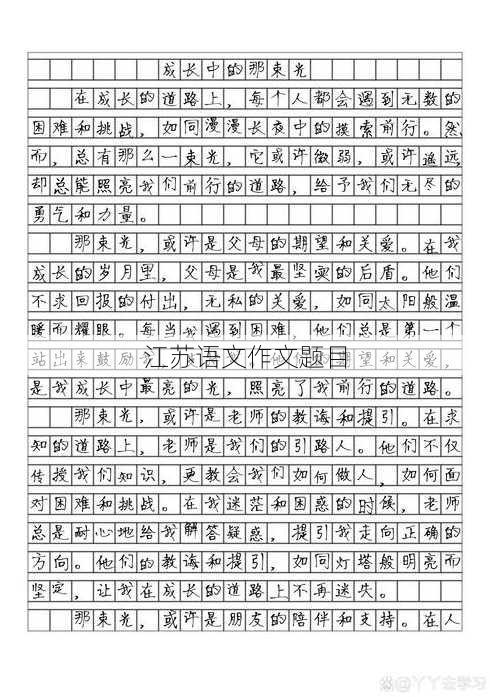 成长中的那束光
在成长的道路上，每个人都会遇到无数的
困难和挑战，如同漫漫长夜中的摸索前行。然
而，总有那么一束光，它或许微弱，或许遥远，
却总能照亮我们前行的道路，给予我们无尽的
勇气和力量。
那束光，或许是父母的期望和关爱。在我
成长的岁月里，父母是我最坚实的后盾。他们
不求回报的付出，无私的关爱，如同太阳般温
暖而耀眼。每当我遇到困难，他们总是第一个
站出来鼓励我 期望和关爱，
江苏语文作文题目
是我成长中最亮的光，照亮了我前行的道路。
那束光，或许是老师的教诲和提引。在求
知的道路上，老师是我们的引路人。他们不仅
传授我们知识，更教会我们如何做人，如何面
对困难和挑战。在我迷茫和困惑的时候，老师
总是耐心地给我解答疑惑，提引我走向正确的
方向。他们的教诲和提引，如同灯塔般明亮而
坚定，让我在成长的道路上不再迷失。
那束光，或许是朋友的陪伴和支持。在人
@丫丫去学习